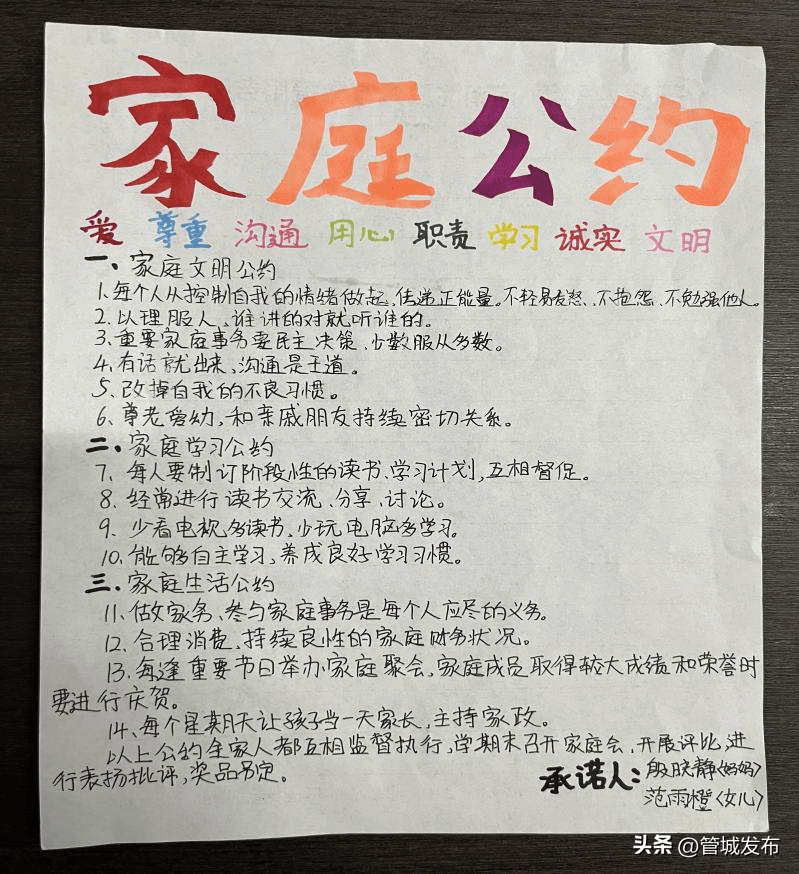 家庭公约
爱 尊重 沟通 用心 职责 学习 诚实 文明
一、家庭文明公约
1.每个人从控制自我的情绪做起,传递正能量。不轻易发怒、不抱怨、不勉强他人。
2.以理服人,谁讲的对就听谁的。
3.重要家庭事务要民主决策、少数服从多数。
4.有话就出来,沟通是王道。
5、改掉自我的不良习惯。
6、尊老爱幼,和亲戚朋友持续密切关系。
二、家庭学习公约
7、每人要制订阶段性的读书、学习计划,互相督促。
8、经常进行读书交流、分享、讨论。
9、少看电视多读书、少玩电脑多学习。
10、能够自主学习,养成良好学习习惯。
三、家庭生活公约
11、做家务、参与家庭事务是每个人应尽的义务。
12、合理消费,持续良性的家庭财务状况。
13、每逢重要节日举办家庭聚会,家庭成员取得较大成绩和荣誉时
要进行庆贺。
14、每个星期天让孩子当一天家长,主持家政。
以上公约全家人都互相监督执行,学期末召开家庭会、开展评比,进
行表扬批评,奖品另定。
承诺人:殷胱静(妈妈)
范雨橙(女儿)
头条 @管城发布